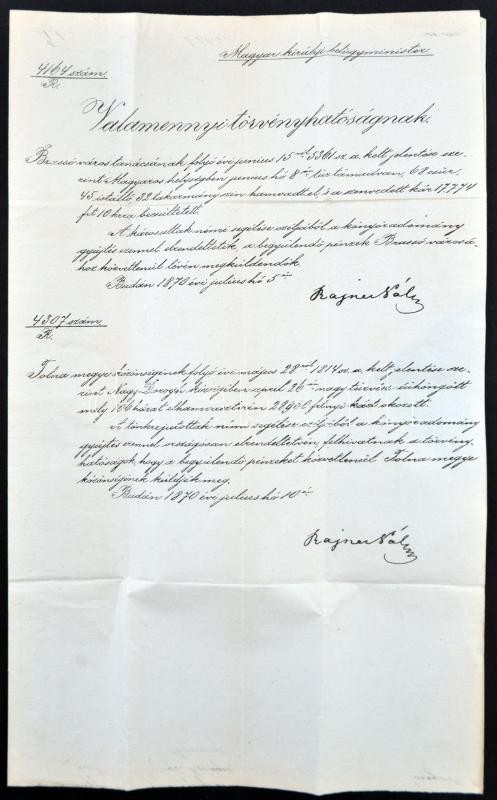 Magyar királyi belügyminister
4164 szám.
R.
Valamennyi törvényhatóságnak.
Brassó város tanácsának folyó évi junius 15ről 5361 sz. a. kelt jelentése sze-
rint Magyaros helységben junius hó 8án tűz támadván, 68 csűr,
45 istálló, 32 takarmány szin hamvadt el, s a szenvedett kár 17774
frt 10 krra becsültetett.
A károsultak némi segélése czéljából a könyöradomány
gyűjtés ezennel elrendeltetik, a begyülendő pénzek Brassó városá-
hoz közvetlenül lévén megküldendők.
Budán 1870 évi julius hó 5én
Rajner Pál
4307 szám.
R.
Tolna megye közönségének folyó évi május 28ról 1814 sz. a. kelt jelentése sze-
rint Nagy Dorogh községben april 26án nagy tűzvész dühöngött
mely 106 házat elhamvasztván 28,950 frtnyi kárt okozott.
A tönkrejutottak némi segélése czéljából a könyöradomány
gyűjtés ezennel országosan elrendeltetvén felhivatnak a törvény-
hatóságok, hogy a begyülendő pénzeket közvetlenül Tolna megye
közönségének küldjék meg.
Budán 1870 évi julius hó 10én
Rajner Pál